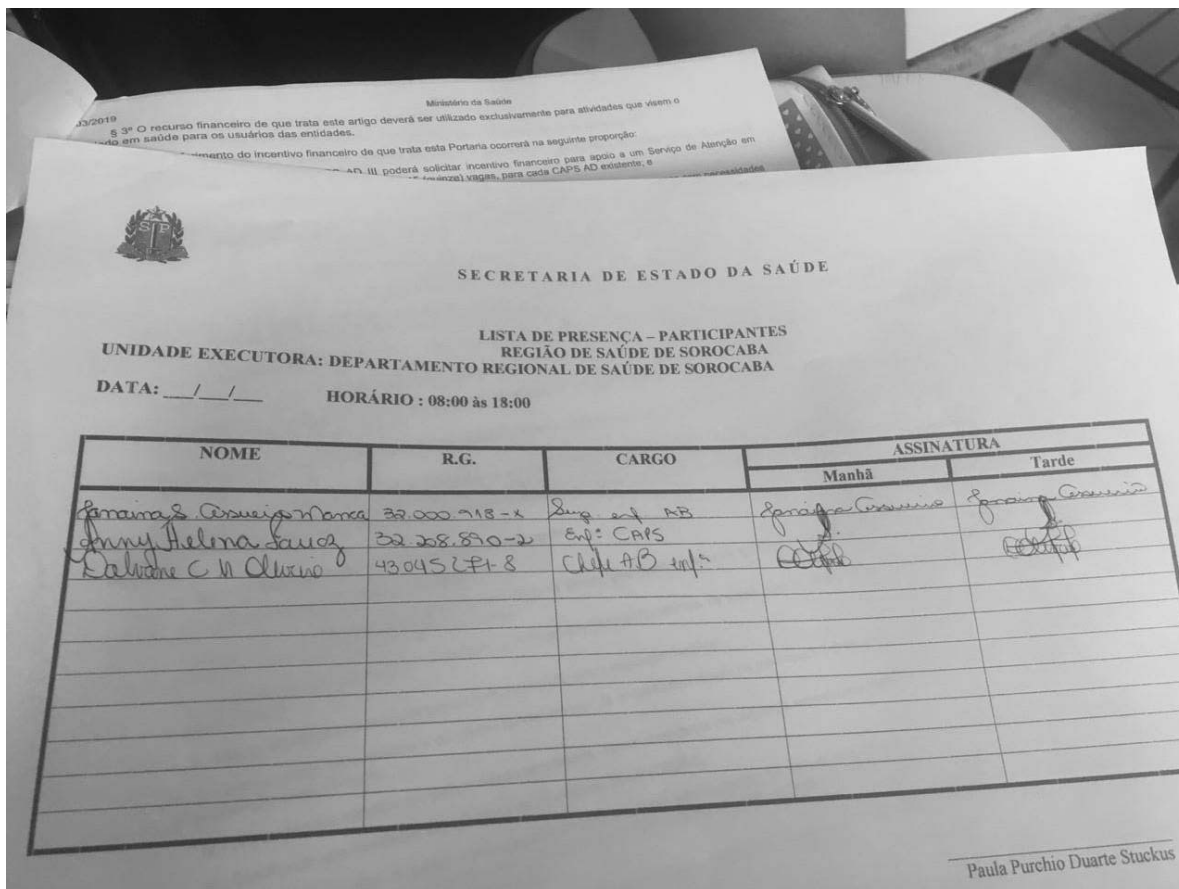 Ministério da Saúde
03/2019
§ 3º O recurso financeiro de que trata este artigo deverá ser utilizado exclusivamente para atividades que visem o
em saúde para os usuários das entidades.
do incentivo financeiro de que trata esta Portaria ocorrerá na seguinte proporção:
AD III poderá solicitar incentivo financeiro para apoio a um Serviço de Atenção em
(quinze) vagas, para cada CAPS AD existente; e
necessidades
SP
SECRETARIA DE ESTADO DA SAÚDE
LISTA DE PRESENÇA – PARTICIPANTES
REGIÃO DE SAÚDE DE SOROCABA
UNIDADE EXECUTORA: DEPARTAMENTO REGIONAL DE SAÚDE DE SOROCABA
DATA: ___/___/___ HORÁRIO : 08:00 às 18:00
NOME R.G. CARGO ASSINATURA
Manhã Tarde
Janaina S. Manca 32.000.918-x enf AB Janaina Janaina
Anny Helena 32.208.890-2 Enfª CAPS
Dalvane C N Oliveira 43045271-8 Chefe AB enfª
Paula Purchio Duarte Stuckus